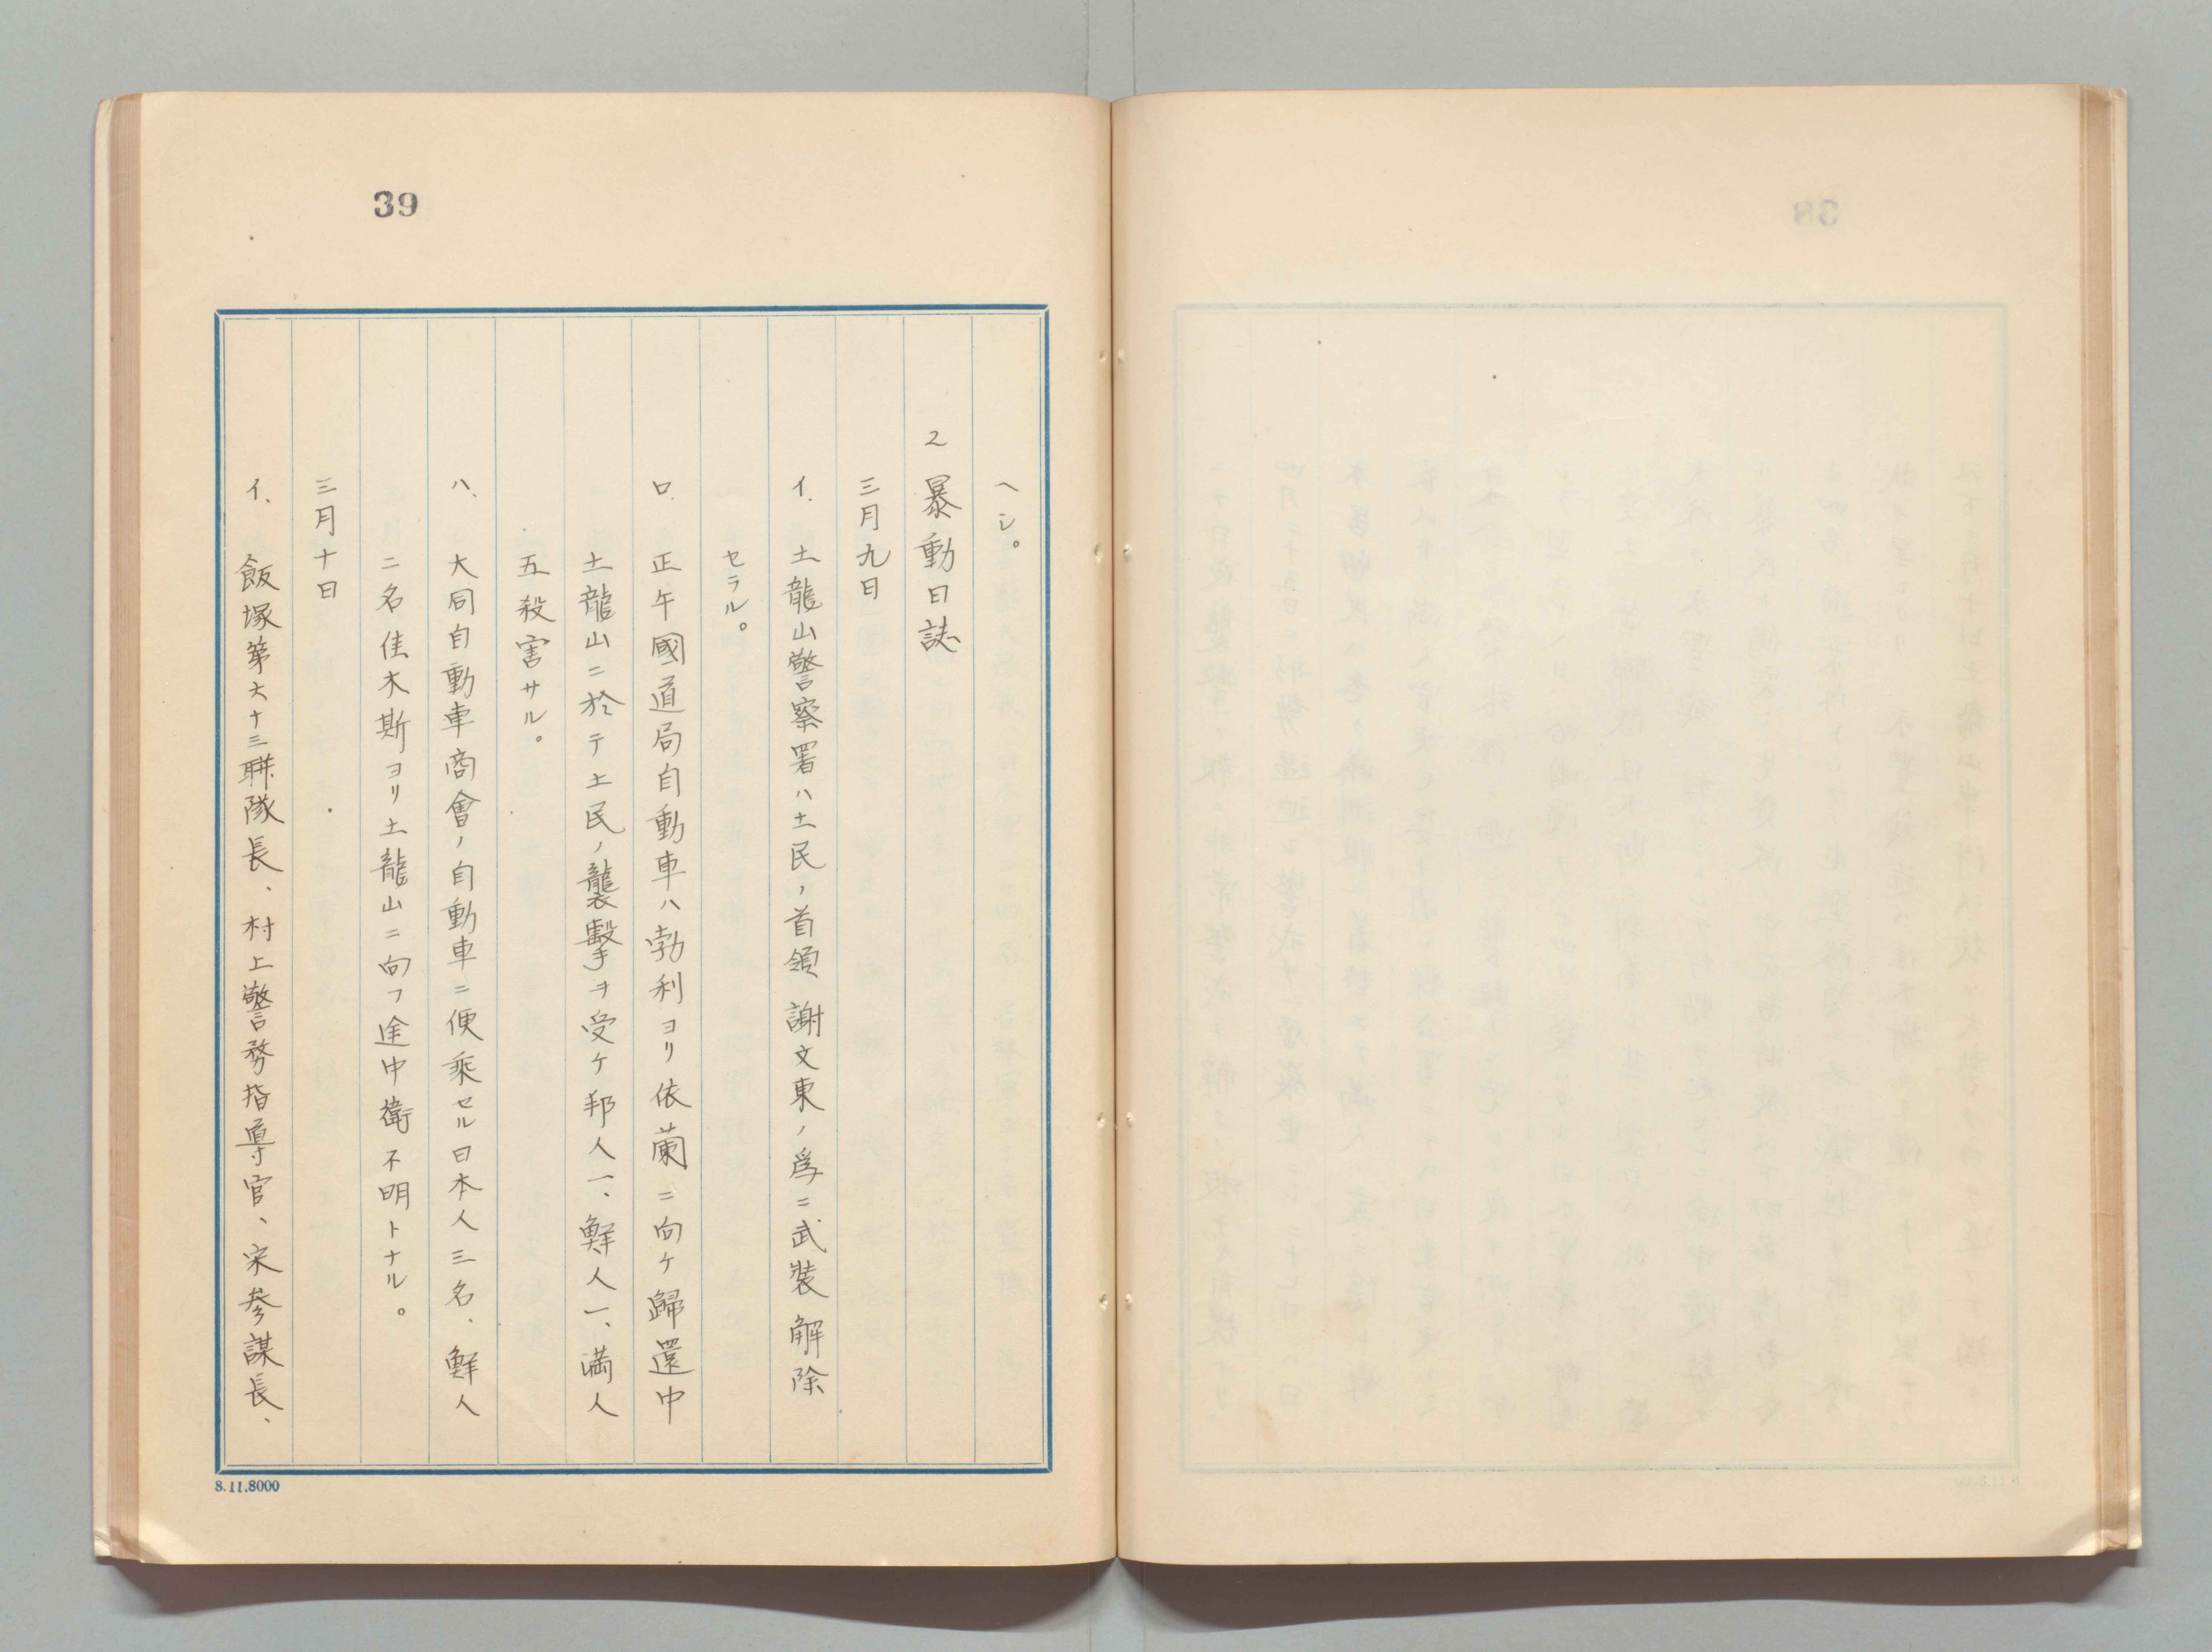 39
ヘシ。
2 暴動日誌
三月九日
イ. 土龍山警察署ハ土民ノ首領謝文東ノ為ニ武装解除
セラル。
ロ. 正午國道局自動車ハ勃利ヨリ依蘭ニ向ケ歸還中
土龍山ニ於テ土民ノ襲擊ヲ受ケ邦人一、鮮人一、満人
五殺害サル。
ハ、大同自動車商會ノ自動車ニ便乘セル日本人三名、鮮人
二名佳木斯ヨリ土龍山ニ向フ途中衛不明トナル。
三月十日
イ、飯塚第六十三聯隊長、村上警務指導官、宋參謀長、
8.11.8000